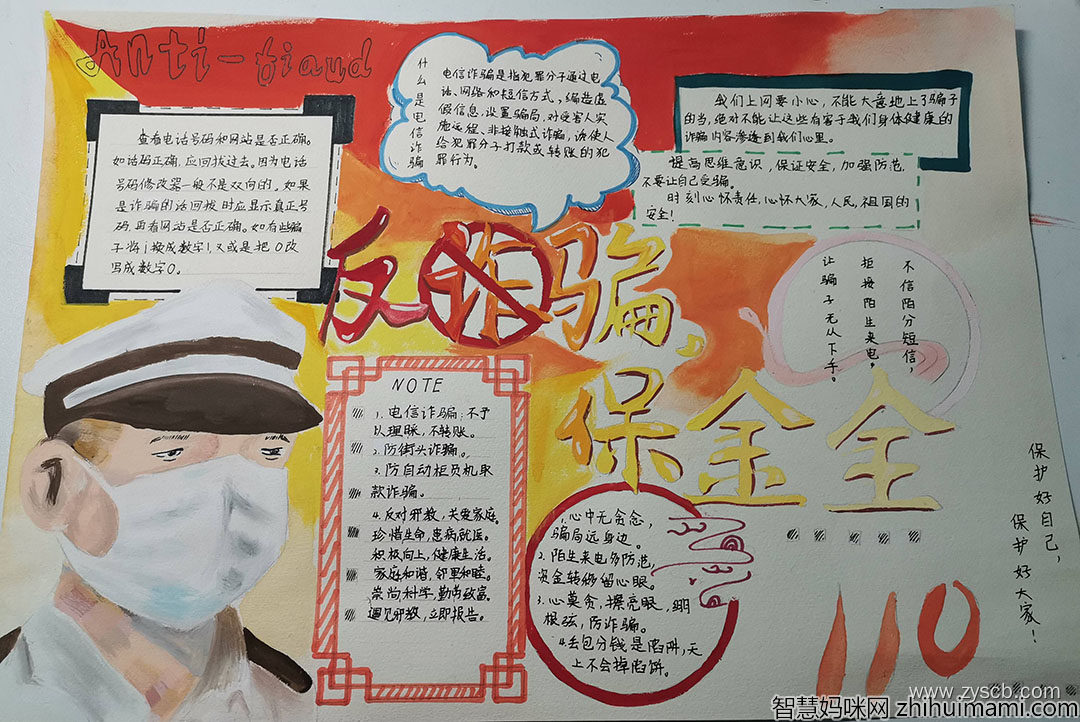 Anti-fiaud
什么是电信诈骗
电信诈骗是指犯罪分子通过电
话、网络和短信方式，编造虚
假信息，设置骗局，对受害人实
施远程、非接触式诈骗，诱使人
给犯罪分子打款或转账的犯
罪行为。
我们上网要小心，不能大意地上了骗子
的当，绝对不能让这些有害于我们身体健康的
诈骗内容渗透到我们心里。
提高思维意识，保证安全，加强防范，
不要让自己受骗。
时刻心怀责任，心怀大家，人民，祖国的
安全！
查看电话号码和网站是否正确。
如话码正确，应回拨过去。因为电话
号码修改器一般不是双向的。如果
是诈骗的话回拨时应显示真正号
码，再看网站是否正确。如有些骗
子将i换成数字1，又或是把O改
写成数字0。
反诈骗，
保金全
不信陌分短信，
拒接陌生来电，
让骗子无从下手。
NOTE
1.电信诈骗：不予
以理睬，不转账。
2.防街头诈骗。
3.防自动柜员机取
款诈骗。
4.反对邪教，关爱家庭。
珍惜生命，患病就医。
积极向上，健康生活。
家庭和谐，邻里和睦。
崇尚科学，勤劳致富。
遇见邪教，立即报告。
1.心中无贪念，
骗局远身边。
2.陌生来电多防范，
资金转移留心眼。
3.心莫贪，擦亮眼，绷
根弦，防诈骗。
4.丢包分钱是陷阱，天
上不会掉馅饼。
保护好自己，
保护好大家！
110
www.zyscb.com
智慧妈咪网 zhihuimami.com